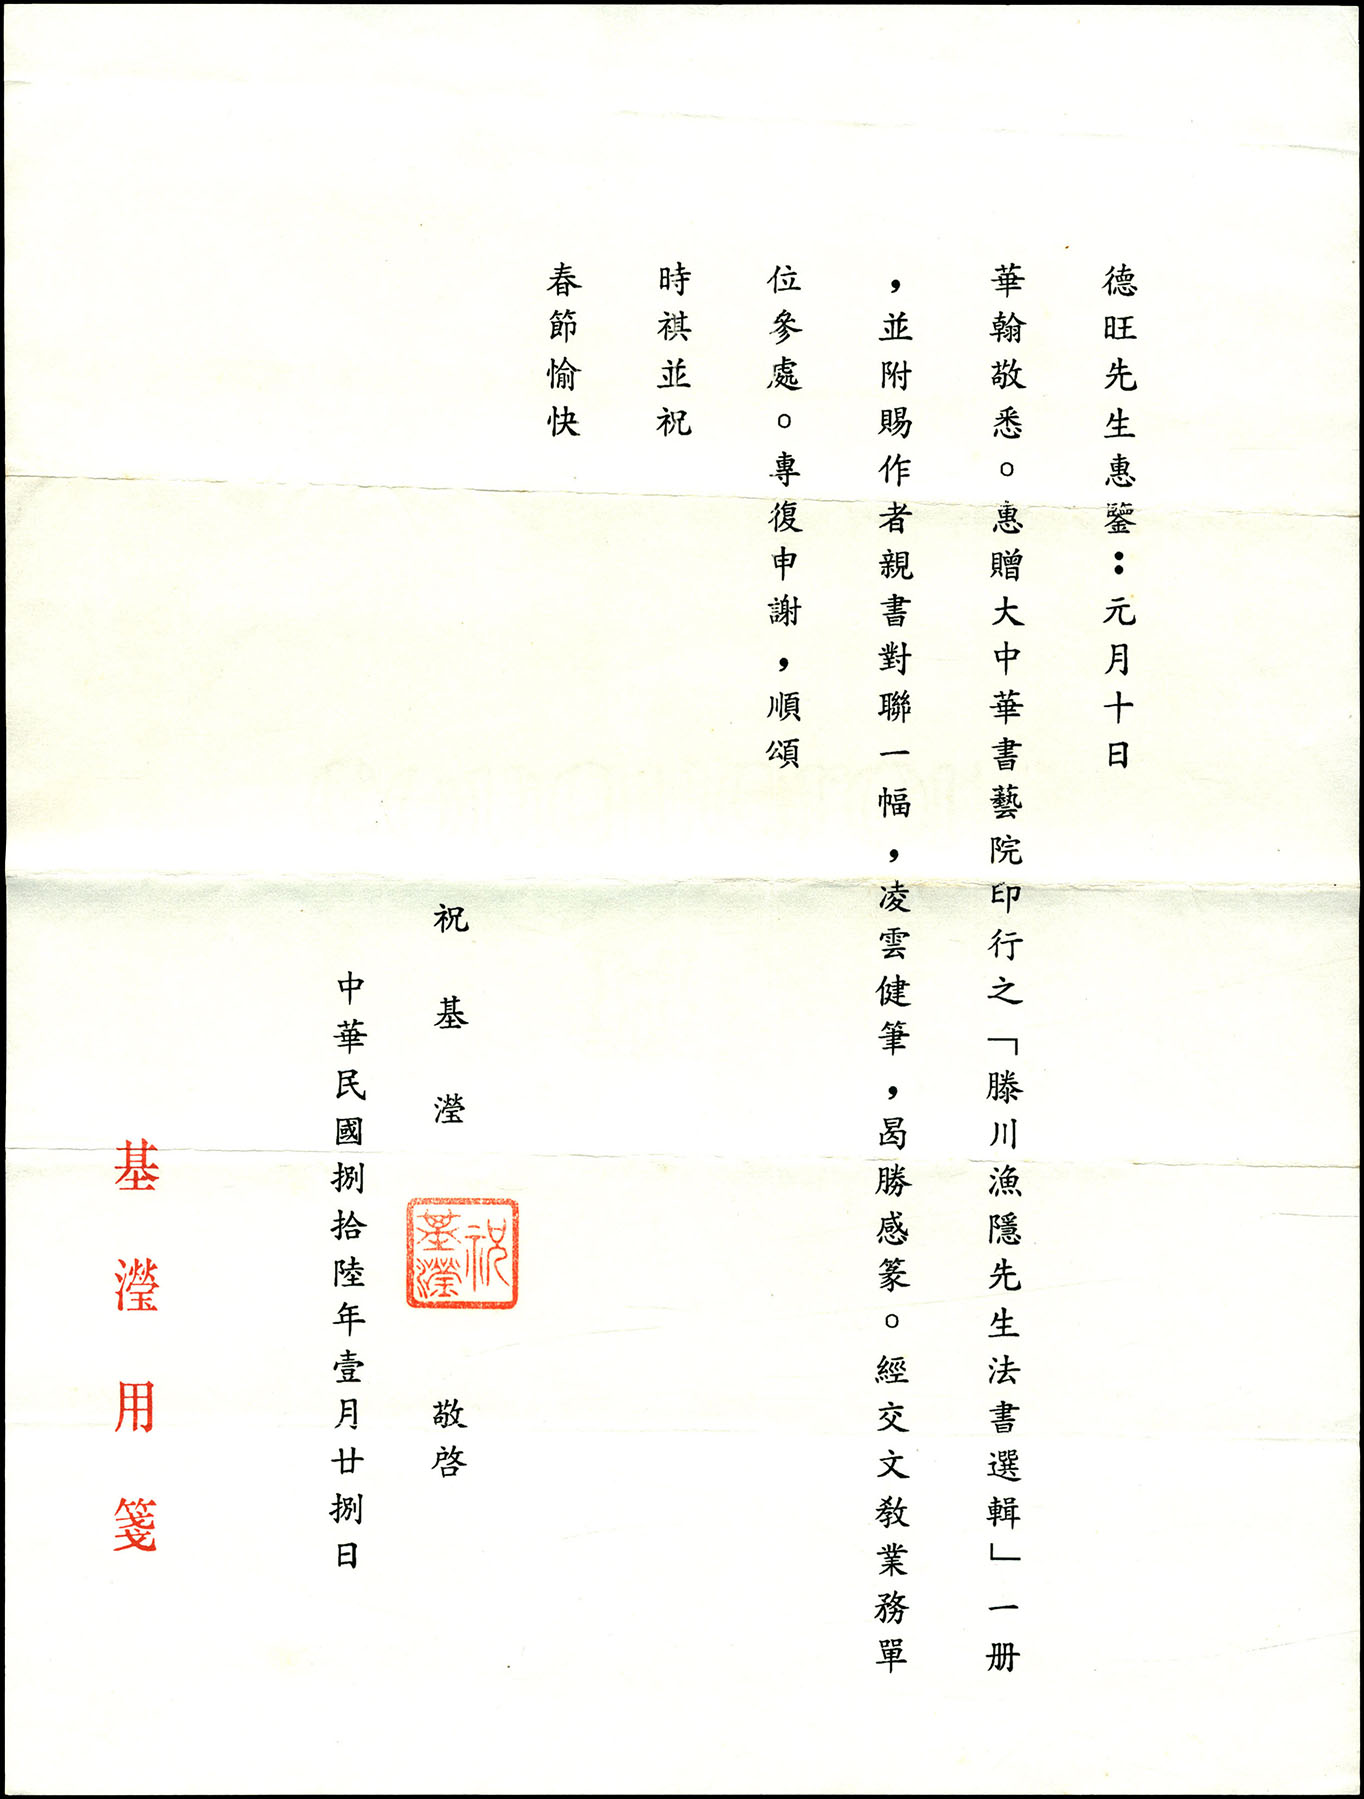 德旺先生惠鑒：元月十日
華翰敬悉。惠贈大中華書藝院印行之「滕川漁隱先生法書選輯」一册
，並附賜作者親書對聯一幅，凌雲健筆，曷勝感篆。經交文教業務單
位參處。專復申謝，順頌
時祺並祝
春節愉快
祝基瀅 祝基瀅 敬啓
中華民國捌拾陸年壹月廿捌日
基瀅用箋